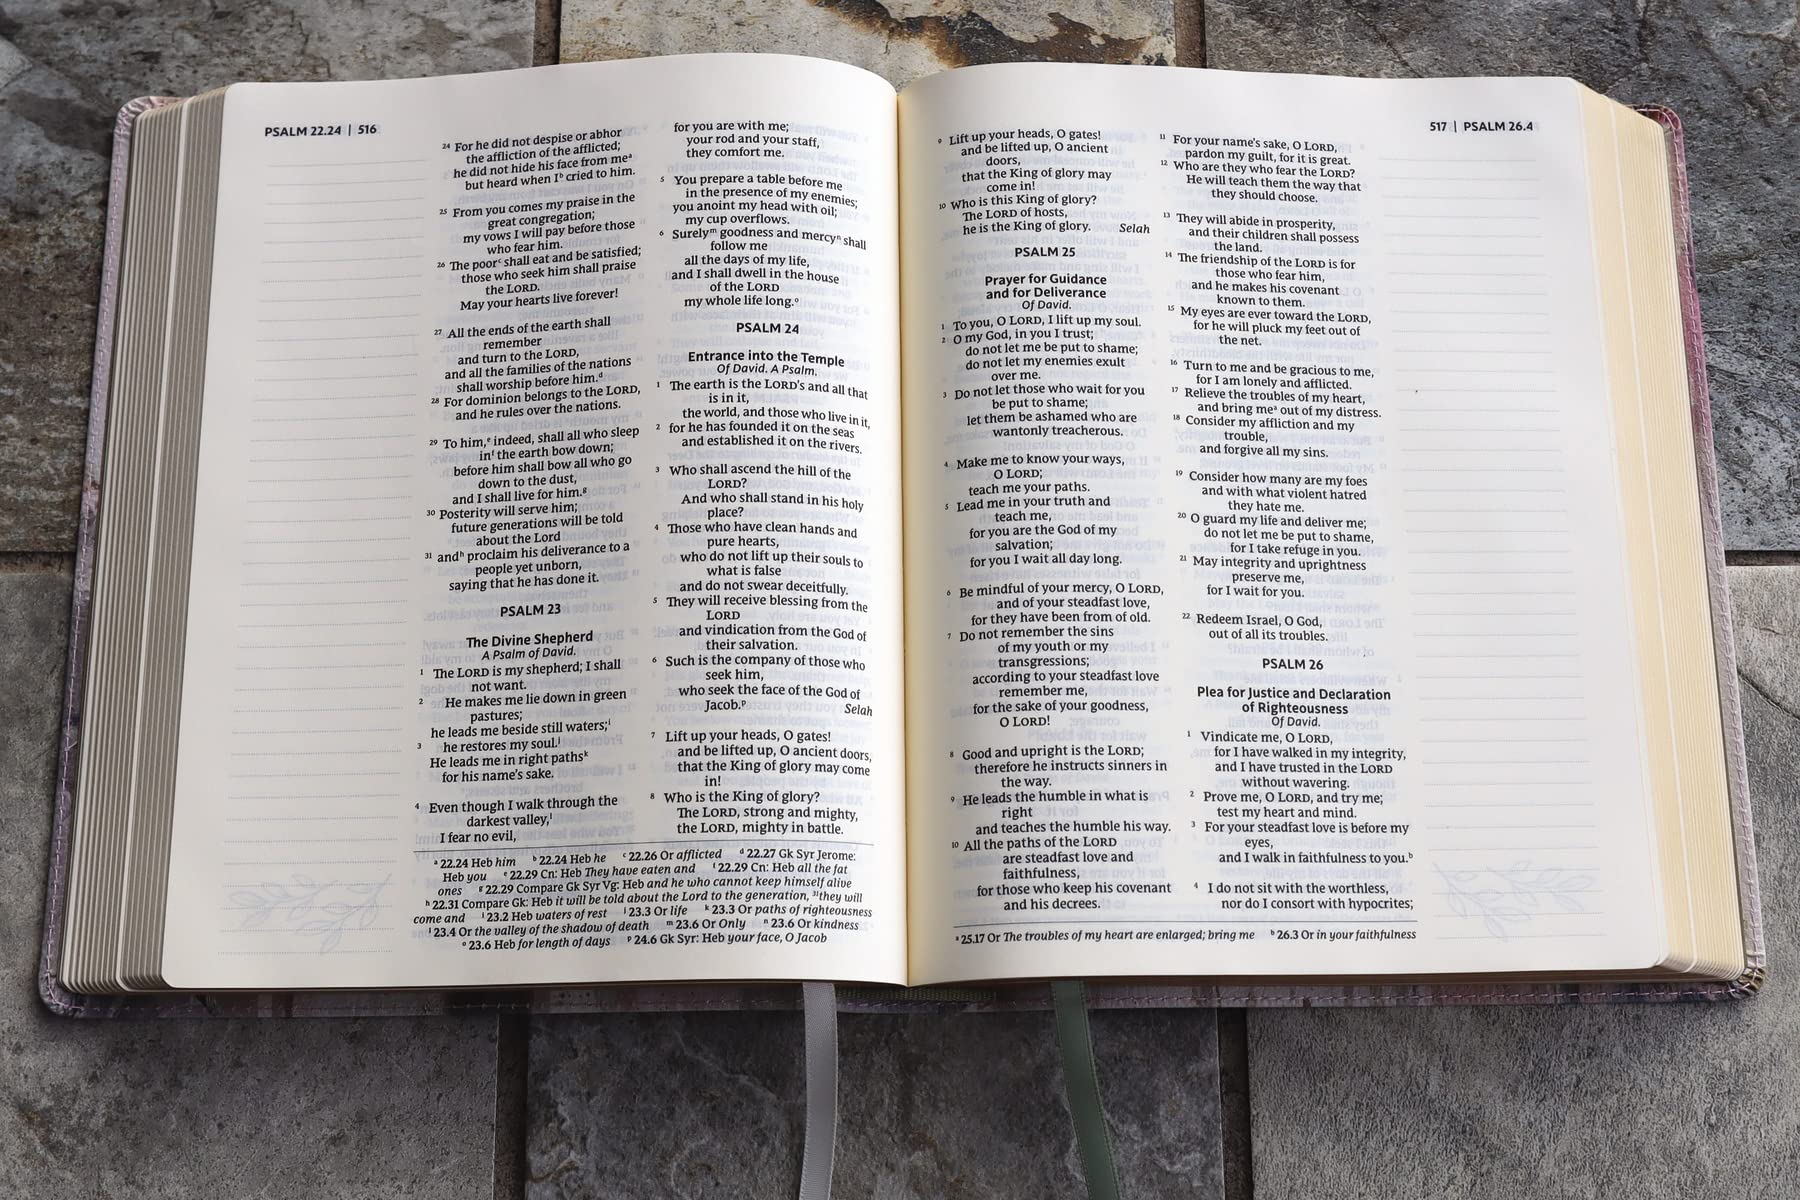 PSALM 22.24 | 516
²⁴ For he did not despise or abhor
the affliction of the afflicted;
he did not hide his face from meᵃ
but heard when Iᵇ cried to him.
²⁵ From you comes my praise in the
great congregation;
my vows I will pay before those
who fear him.
²⁶ The poorᶜ shall eat and be satisfied;
those who seek him shall praise
the LORD.
May your hearts live forever!
²⁷ All the ends of the earth shall
remember
and turn to the LORD,
and all the families of the nations
shall worship before him.ᵈ
²⁸ For dominion belongs to the LORD,
and he rules over the nations.
²⁹ To him,ᵉ indeed, shall all who sleep
inᶠ the earth bow down;
before him shall bow all who go
down to the dust,
and I shall live for him.ᵍ
³⁰ Posterity will serve him;
future generations will be told
about the Lord
³¹ andʰ proclaim his deliverance to a
people yet unborn,
saying that he has done it.
PSALM 23
The Divine Shepherd
A Psalm of David.
¹ The LORD is my shepherd; I shall
not want.
² He makes me lie down in green
pastures;
he leads me beside still waters;ⁱ
³ he restores my soul.ʲ
He leads me in right pathsᵏ
for his name's sake.
⁴ Even though I walk through the
darkest valley,ˡ
I fear no evil,
for you are with me;
your rod and your staff,
they comfort me.
⁵ You prepare a table before me
in the presence of my enemies;
you anoint my head with oil;
my cup overflows.
⁶ Surelyᵐ goodness and mercyⁿ shall
follow me
all the days of my life,
and I shall dwell in the house
of the LORD
my whole life long.ᵒ
PSALM 24
Entrance into the Temple
Of David. A Psalm.
¹ The earth is the LORD's and all that
is in it,
the world, and those who live in it,
² for he has founded it on the seas
and established it on the rivers.
³ Who shall ascend the hill of the
LORD?
And who shall stand in his holy
place?
⁴ Those who have clean hands and
pure hearts,
who do not lift up their souls to
what is false
and do not swear deceitfully.
⁵ They will receive blessing from the
LORD
and vindication from the God of
their salvation.
⁶ Such is the company of those who
seek him,
who seek the face of the God of
Jacob.ᵖ Selah
⁷ Lift up your heads, O gates!
and be lifted up, O ancient doors,
that the King of glory may come
in!
⁸ Who is the King of glory?
The LORD, strong and mighty,
the LORD, mighty in battle.
ᵃ 22.24 Heb him ᵇ 22.24 Heb he ᶜ 22.26 Or afflicted ᵈ 22.27 Gk Syr Jerome:
Heb you ᵉ 22.29 Cn: Heb They have eaten and ᶠ 22.29 Cn: Heb all the fat
ones ᵍ 22.29 Compare Gk Syr Vg: Heb and he who cannot keep himself alive
ʰ 22.31 Compare Gk: Heb it will be told about the Lord to the generation, ³¹they will
come and ⁱ 23.2 Heb waters of rest ʲ 23.3 Or life ᵏ 23.3 Or paths of righteousness
ˡ 23.4 Or the valley of the shadow of death ᵐ 23.6 Or Only ⁿ 23.6 Or kindness
ᵒ 23.6 Heb for length of days ᵖ 24.6 Gk Syr: Heb your face, O Jacob
517 | PSALM 26.4
⁹ Lift up your heads, O gates!
and be lifted up, O ancient
doors,
that the King of glory may
come in!
¹⁰ Who is this King of glory?
The LORD of hosts,
he is the King of glory. Selah
PSALM 25
Prayer for Guidance
and for Deliverance
Of David.
¹ To you, O LORD, I lift up my soul.
² O my God, in you I trust;
do not let me be put to shame;
do not let my enemies exult
over me.
³ Do not let those who wait for you
be put to shame;
let them be ashamed who are
wantonly treacherous.
⁴ Make me to know your ways,
O LORD;
teach me your paths.
⁵ Lead me in your truth and
teach me,
for you are the God of my
salvation;
for you I wait all day long.
⁶ Be mindful of your mercy, O LORD,
and of your steadfast love,
for they have been from of old.
⁷ Do not remember the sins
of my youth or my
transgressions;
according to your steadfast love
remember me,
for the sake of your goodness,
O LORD!
⁸ Good and upright is the LORD;
therefore he instructs sinners in
the way.
⁹ He leads the humble in what is
right
and teaches the humble his way.
¹⁰ All the paths of the LORD
are steadfast love and
faithfulness,
for those who keep his covenant
and his decrees.
¹¹ For your name's sake, O LORD,
pardon my guilt, for it is great.
¹² Who are they who fear the LORD?
He will teach them the way that
they should choose.
¹³ They will abide in prosperity,
and their children shall possess
the land.
¹⁴ The friendship of the LORD is for
those who fear him,
and he makes his covenant
known to them.
¹⁵ My eyes are ever toward the LORD,
for he will pluck my feet out of
the net.
¹⁶ Turn to me and be gracious to me,
for I am lonely and afflicted.
¹⁷ Relieve the troubles of my heart,
and bring meᵃ out of my distress.
¹⁸ Consider my affliction and my
trouble,
and forgive all my sins.
¹⁹ Consider how many are my foes
and with what violent hatred
they hate me.
²⁰ O guard my life and deliver me;
do not let me be put to shame,
for I take refuge in you.
²¹ May integrity and uprightness
preserve me,
for I wait for you.
²² Redeem Israel, O God,
out of all its troubles.
PSALM 26
Plea for Justice and Declaration
of Righteousness
Of David.
¹ Vindicate me, O LORD,
for I have walked in my integrity,
and I have trusted in the LORD
without wavering.
² Prove me, O LORD, and try me;
test my heart and mind.
³ For your steadfast love is before my
eyes,
and I walk in faithfulness to you.ᵇ
⁴ I do not sit with the worthless,
nor do I consort with hypocrites;
ᵃ 25.17 Or The troubles of my heart are enlarged; bring me ᵇ 26.3 Or in your faithfulness